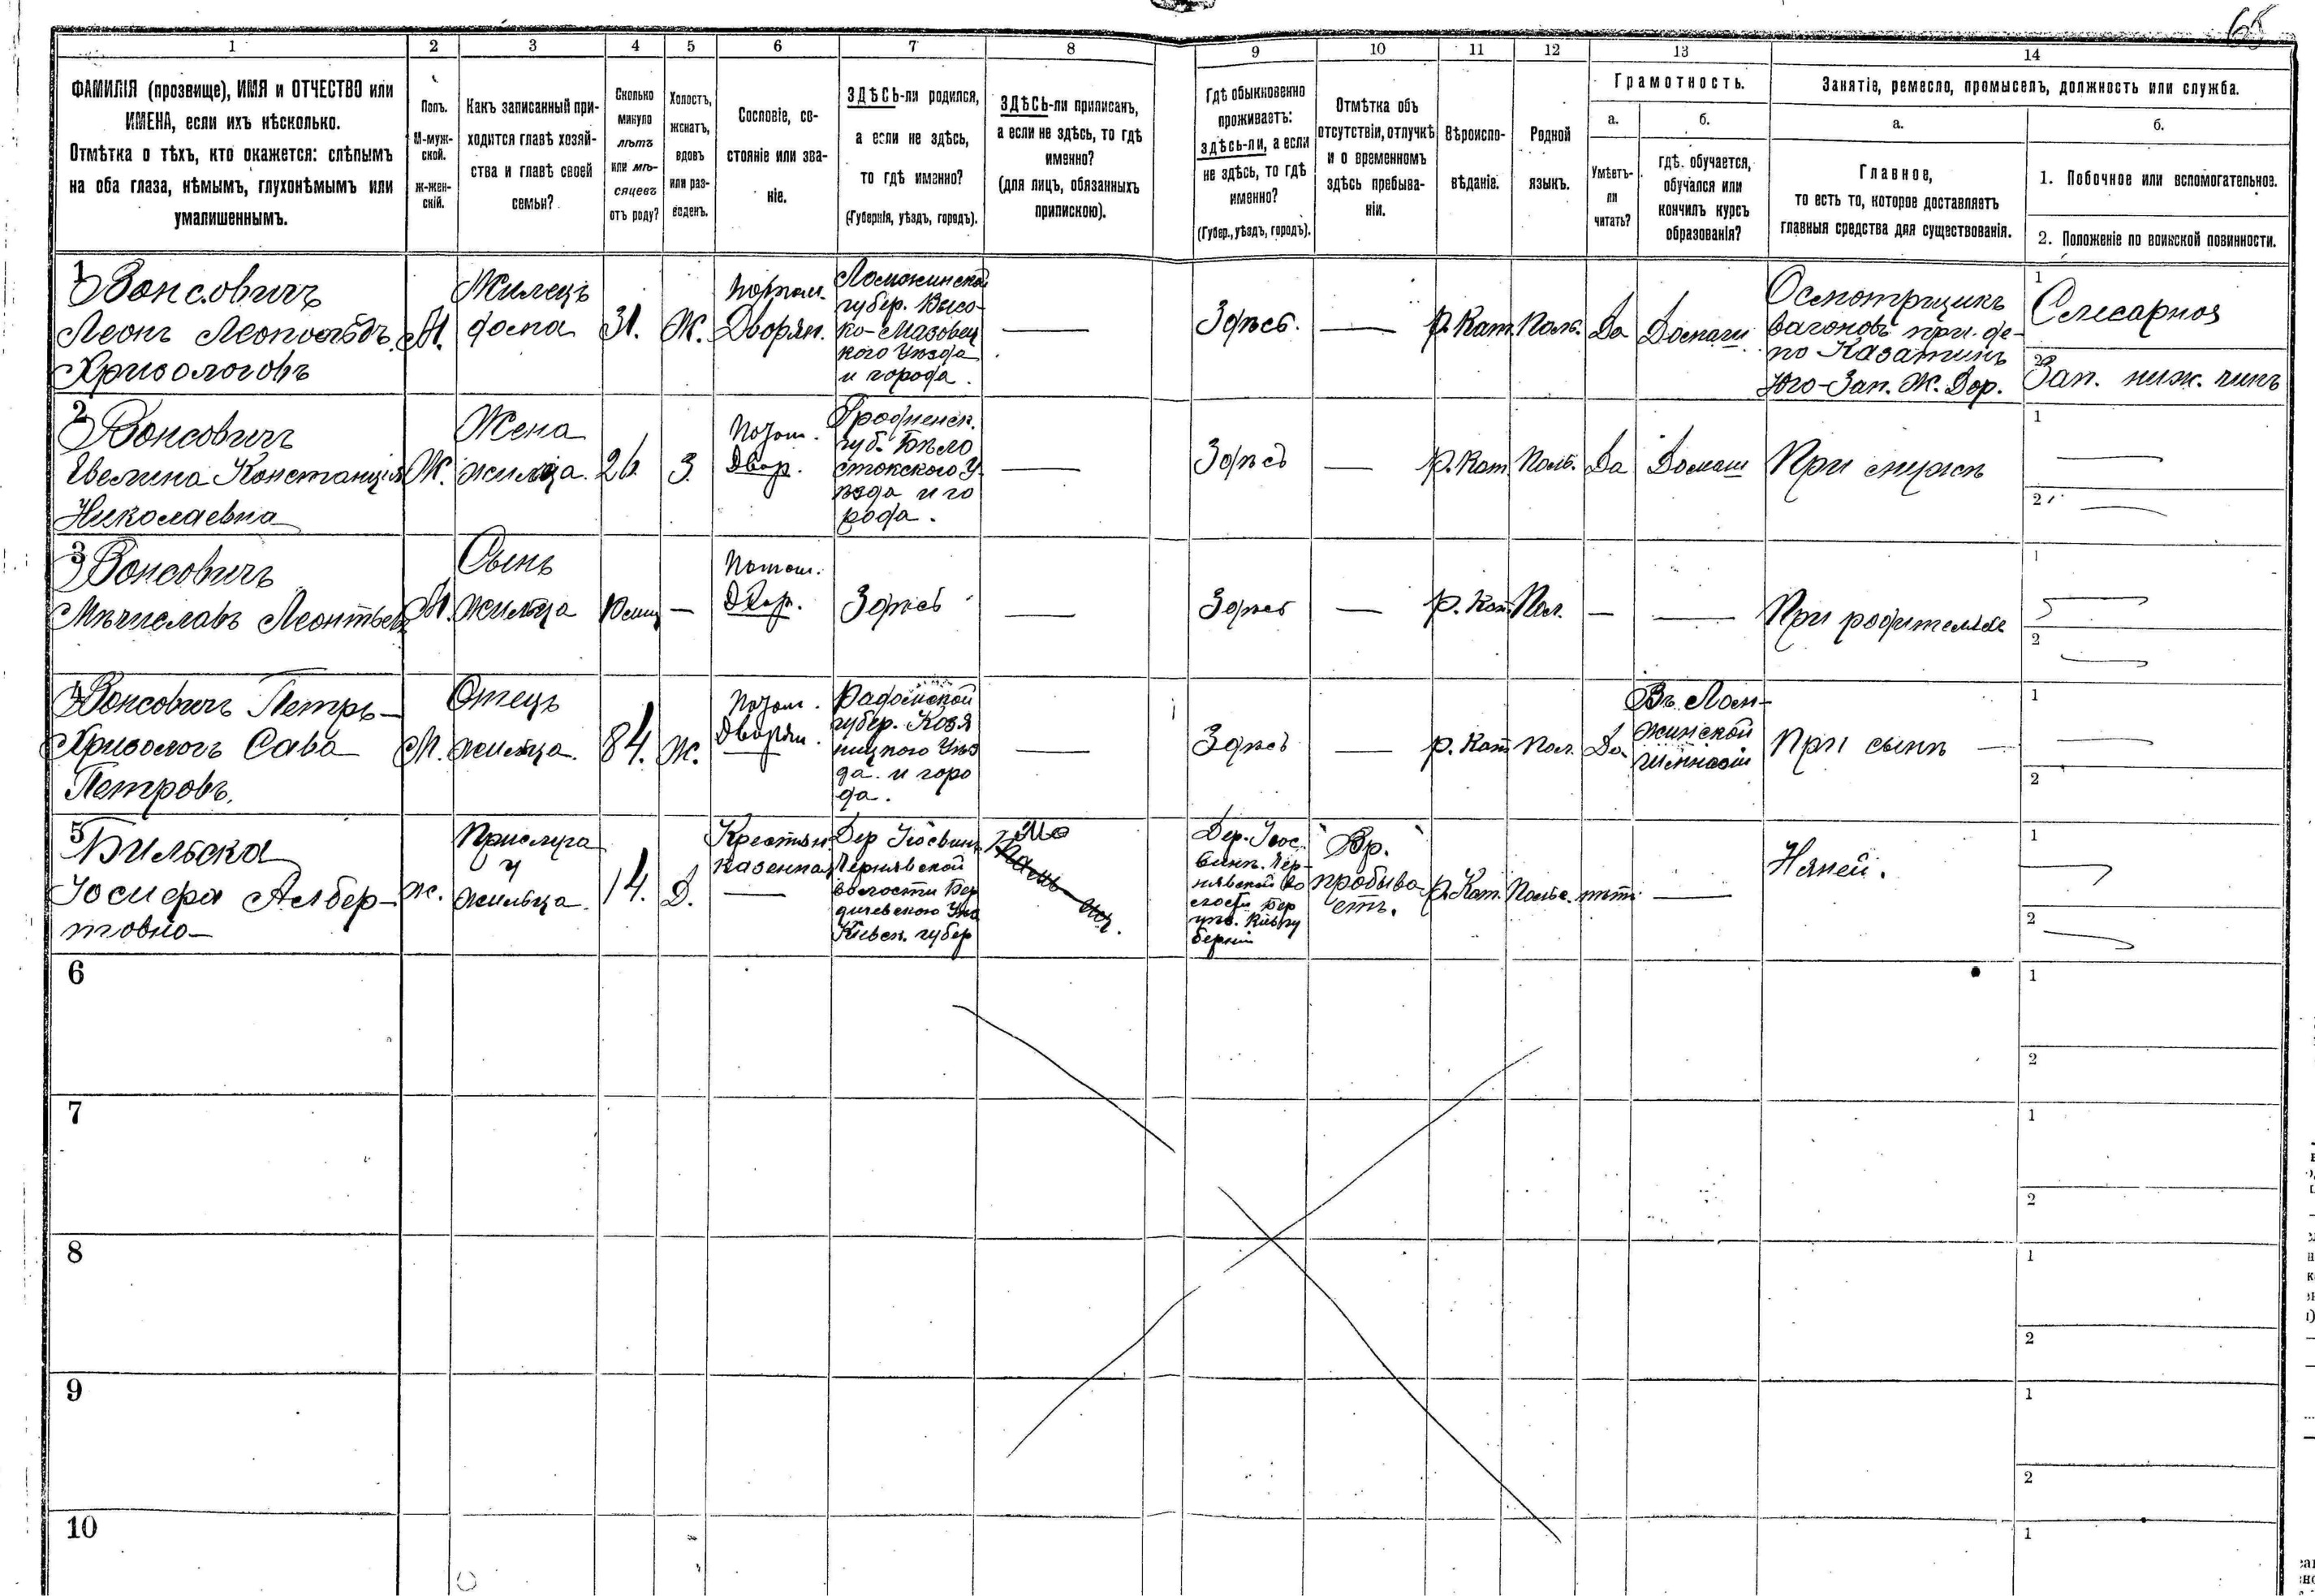 65
1 2 3 4 5 6 7 8 9 10 11 12 13 14
ФАМИЛІЯ (прозвище), ИМЯ и ОТЧЕСТВО или
ИМЕНА, если ихъ нѣсколько.
Отмѣтка о тѣхъ, кто окажется: слѣпымъ
на оба глаза, нѣмымъ, глухонѣмымъ или
умалишеннымъ.
Полъ.
М-муж-
ской.
ж-жен-
скій.
Какъ записанный при-
ходится главѣ хозяй-
ства и главѣ своей
семьи?
Сколько
минуло
лѣтъ
или мѣ-
сяцевъ
отъ роду?
Холостъ,
женатъ,
вдовъ
или раз-
веденъ.
Сословіе, со-
стояніе или зва-
ніе.
ЗДѢСЬ-ли родился,
а если не здѣсь,
то гдѣ именно?
(Губернія, уѣздъ, городъ).
ЗДѢСЬ-ли приписанъ,
а если не здѣсь, то гдѣ
именно?
(для лицъ, обязанныхъ
припискою).
Гдѣ обыкновенно
проживаетъ:
здѣсь-ли, а если
не здѣсь, то гдѣ
именно?
(Губер., уѣздъ, городъ).
Отмѣтка объ
отсутствіи, отлучкѣ
и о временномъ
здѣсь пребыва-
ніи.
Вѣроиспо-
вѣданіе.
Родной
языкъ.
Грамотность.
а.
Умѣетъ-
ли
читать?
б.
гдѣ обучается,
обучался или
кончилъ курсъ
образованія?
Занятіе, ремесло, промыселъ, должность или служба.
а.
Главное,
то есть то, которое доставляетъ
главныя средства для существованія.
б.
1. Побочное или вспомогательное.
2. Положеніе по воинской повинности.
1
Вонсовичъ
Леонъ Леопольдъ
Хризологовъ
М.
Жилецъ
дома
31.
Ж.
Потом.
Дворян.
Ломжинской
губер. Высо-
ко-Мазовец
кого Уѣзда
и города.
Здѣсь.
р. Кат.
Поль.
Да
Домаш.
Осмотрщикъ
вагоновъ при де-
по Казатинъ
Юго-Зап. Ж. Дор.
1
Слесарное
2
Зап. ниж. чинъ
2
Вонсовичъ
Евелина Констанція
Николаевна
Ж.
Жена
жильца.
26
З.
Потом.
Двор.
Гродненск.
губ. Бѣло
стокского У
ѣзда и го
рода.
Здѣсь
р. Кат.
Поль.
Да
Домаш
При мужѣ
1
2
3
Вонсовичъ
Мѣчиславъ Леонтьев
М.
Сынъ
жильца
Потом.
Двор.
Здѣсь
Здѣсь
р. Кат.
Пол.
При родителяхъ
1
2
4
Вонсовичъ Петръ-
Хризологъ Сава
Петровъ.
М.
Отецъ
жильца.
84.
Ж.
Потом.
Дворян.
Радомской
губер. Козя
ницкого Уѣз
да и горо
да.
Здѣсь
р. Кат
Пол.
Да
Въ Лом-
жинской
гимназіи
При сынѣ
1
2
5
Бильска
Іосифа Албер-
товна
Ж.
Прислуга
у
жильца.
14.
Д.
Крестьян.
Дер
Чернявской
волости Бер
дичевского Уѣз
Кіевск. губер
Дер.
волости Бер
уѣз. Кіев гу
берніи
Вр.
пробыва
етъ.
р. Кат.
Польс.
нѣтъ
Няней.
1
2
6
1
2
7
1
2
8
1
2
9
1
2
10
1